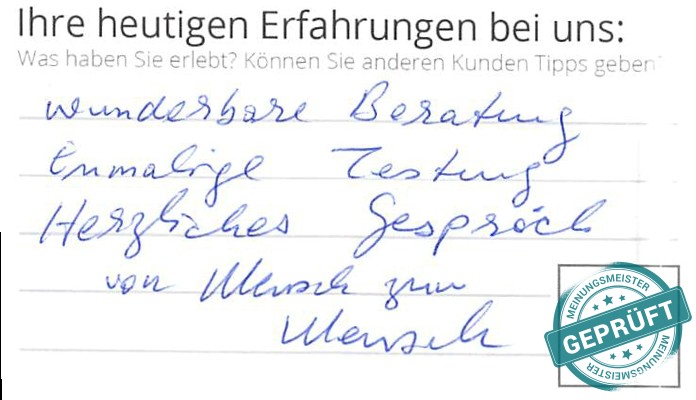 Ihre heutigen Erfahrungen bei uns:
Was haben Sie erlebt? Können Sie anderen Kunden Tipps geben?
wunderbare Beratung
Einmalige Testung
Herzliches Gespräch
von Mensch zum
Mensch
MEINUNGSMEISTER
GEPRÜFT
MEINUNGSMEISTER